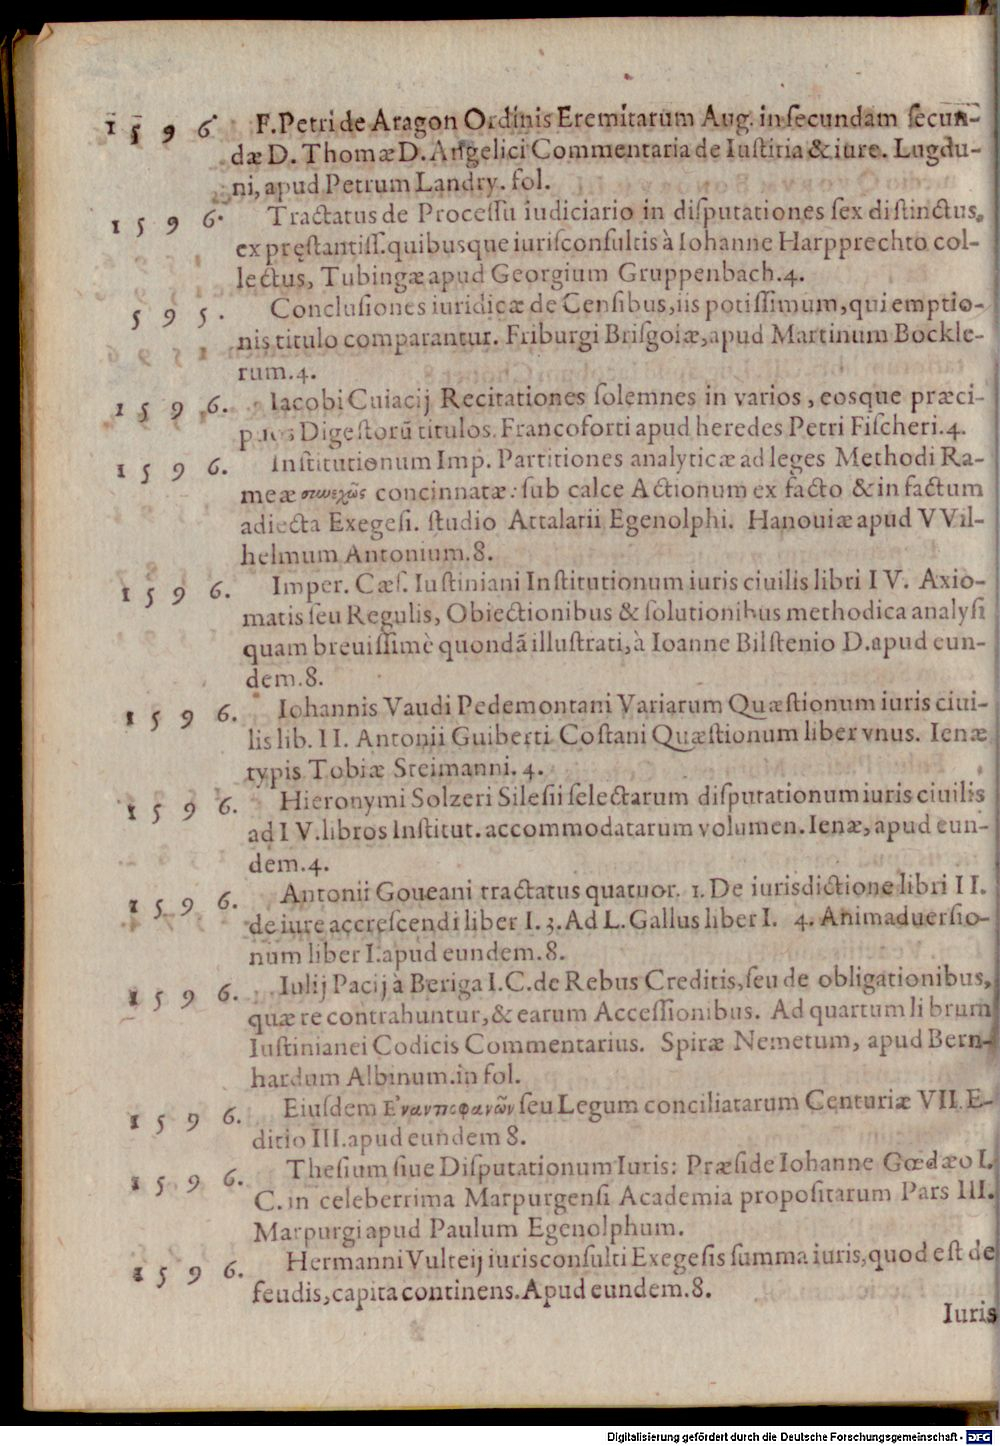 1 5 9 6. F. Petri de Aragon Ordinis Eremitarum Aug. in ſecundam ſecun-
dæ D. Thomæ D. Angelici Commentaria de Iuſtitia & iure. Lugdu-
ni, apud Petrum Landry. fol.
1 5 9 6. Tractatus de Proceſſu iudiciario in diſputationes ſex diſtinctus,
ex pręſtantiſſ. quibusque iuriſconſultis à Iohanne Harpprechto col-
lectus, Tubingæ apud Georgium Gruppenbach. 4.
5 9 5. Concluſiones iuridicæ de Cenſibus, iis potiſſimum, qui emptio-
nis titulo comparantur. Friburgi Briſgoiæ, apud Martinum Bockle-
rum. 4.
1 5 9 6. Iacobi Cuiacij Recitationes ſolemnes in varios, eosque præci-
puos Digeſtorũ titulos. Francoforti apud heredes Petri Fiſcheri. 4.
1 5 9 6. Inſtitutionum Imp. Partitiones analyticæ ad leges Methodi Ra-
meæ συνεχῶς concinnatæ: ſub calce Actionum ex facto & in factum
adiecta Exegeſi. ſtudio Attalarii Egenolphi. Hanouiæ apud VVil-
helmum Antonium. 8.
1 5 9 6. Imper. Cæſ. Iuſtiniani Inſtitutionum iuris ciuilis libri IV. Axio-
matis ſeu Regulis, Obiectionibus & ſolutionibus methodica analyſi
quam breuiſſimè quondã illuſtrati, à Ioanne Bilſtenio D. apud eun-
dem. 8.
1 5 9 6. Iohannis Vaudi Pedemontani Variarum Quæſtionum iuris ciui-
lis lib. II. Antonii Guiberti Coſtani Quæſtionum liber vnus. Ienæ
typis Tobiæ Steimanni. 4.
1 5 9 6. Hieronymi Solzeri Sileſii ſelectarum diſputationum iuris ciuilis
ad IV. libros Inſtitut. accommodatarum volumen. Ienæ, apud eun-
dem. 4.
1 5 9 6. Antonii Goueani tractatus quatuor. 1. De iurisdictione libri II.
de iure accreſcendi liber I. 3. Ad L. Gallus liber I. 4. Animaduerſio-
num liber I. apud eundem. 8.
1 5 9 6. Iulij Pacij à Beriga I. C. de Rebus Creditis, ſeu de obligationibus,
quæ re contrahuntur, & earum Acceſſionibus. Ad quartum librum
Iuſtinianei Codicis Commentarius. Spiræ Nemetum, apud Bern-
hardum Albinum. in fol.
1 5 9 6. Eiuſdem Ἐναντιοφανῶν ſeu Legum conciliatarum Centuriæ VII. E-
ditio III. apud eundem 8.
1 5 9 6. Theſium ſiue Diſputationum Iuris: Præſide Iohanne Gœdæo I.
C. in celeberrima Marpurgenſi Academia propoſitarum Pars III.
Marpurgi apud Paulum Egenolphum.
1 5 9 6. Hermanni Vulteij iurisconſulti Exegeſis ſumma iuris, quod eſt de
feudis, capita continens. Apud eundem. 8.
Iuris
Digitalisierung gefördert durch die Deutsche Forschungsgemeinschaft - DFG